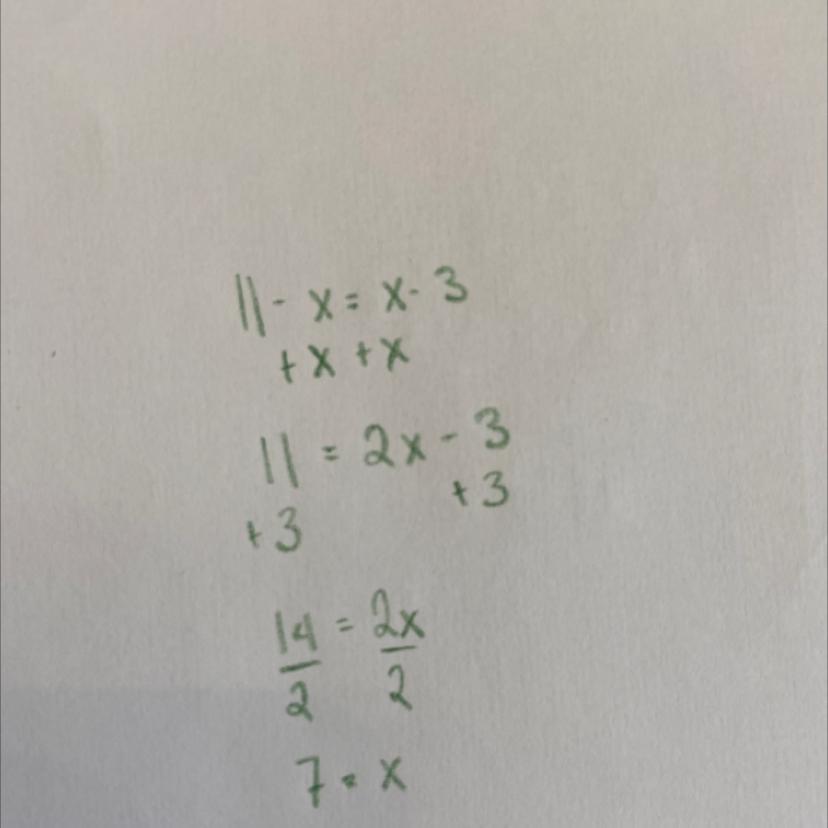 11 - x = x - 3
+x +x
11 = 2x - 3
+3
+3
14 = 2x
2 2
7 = x